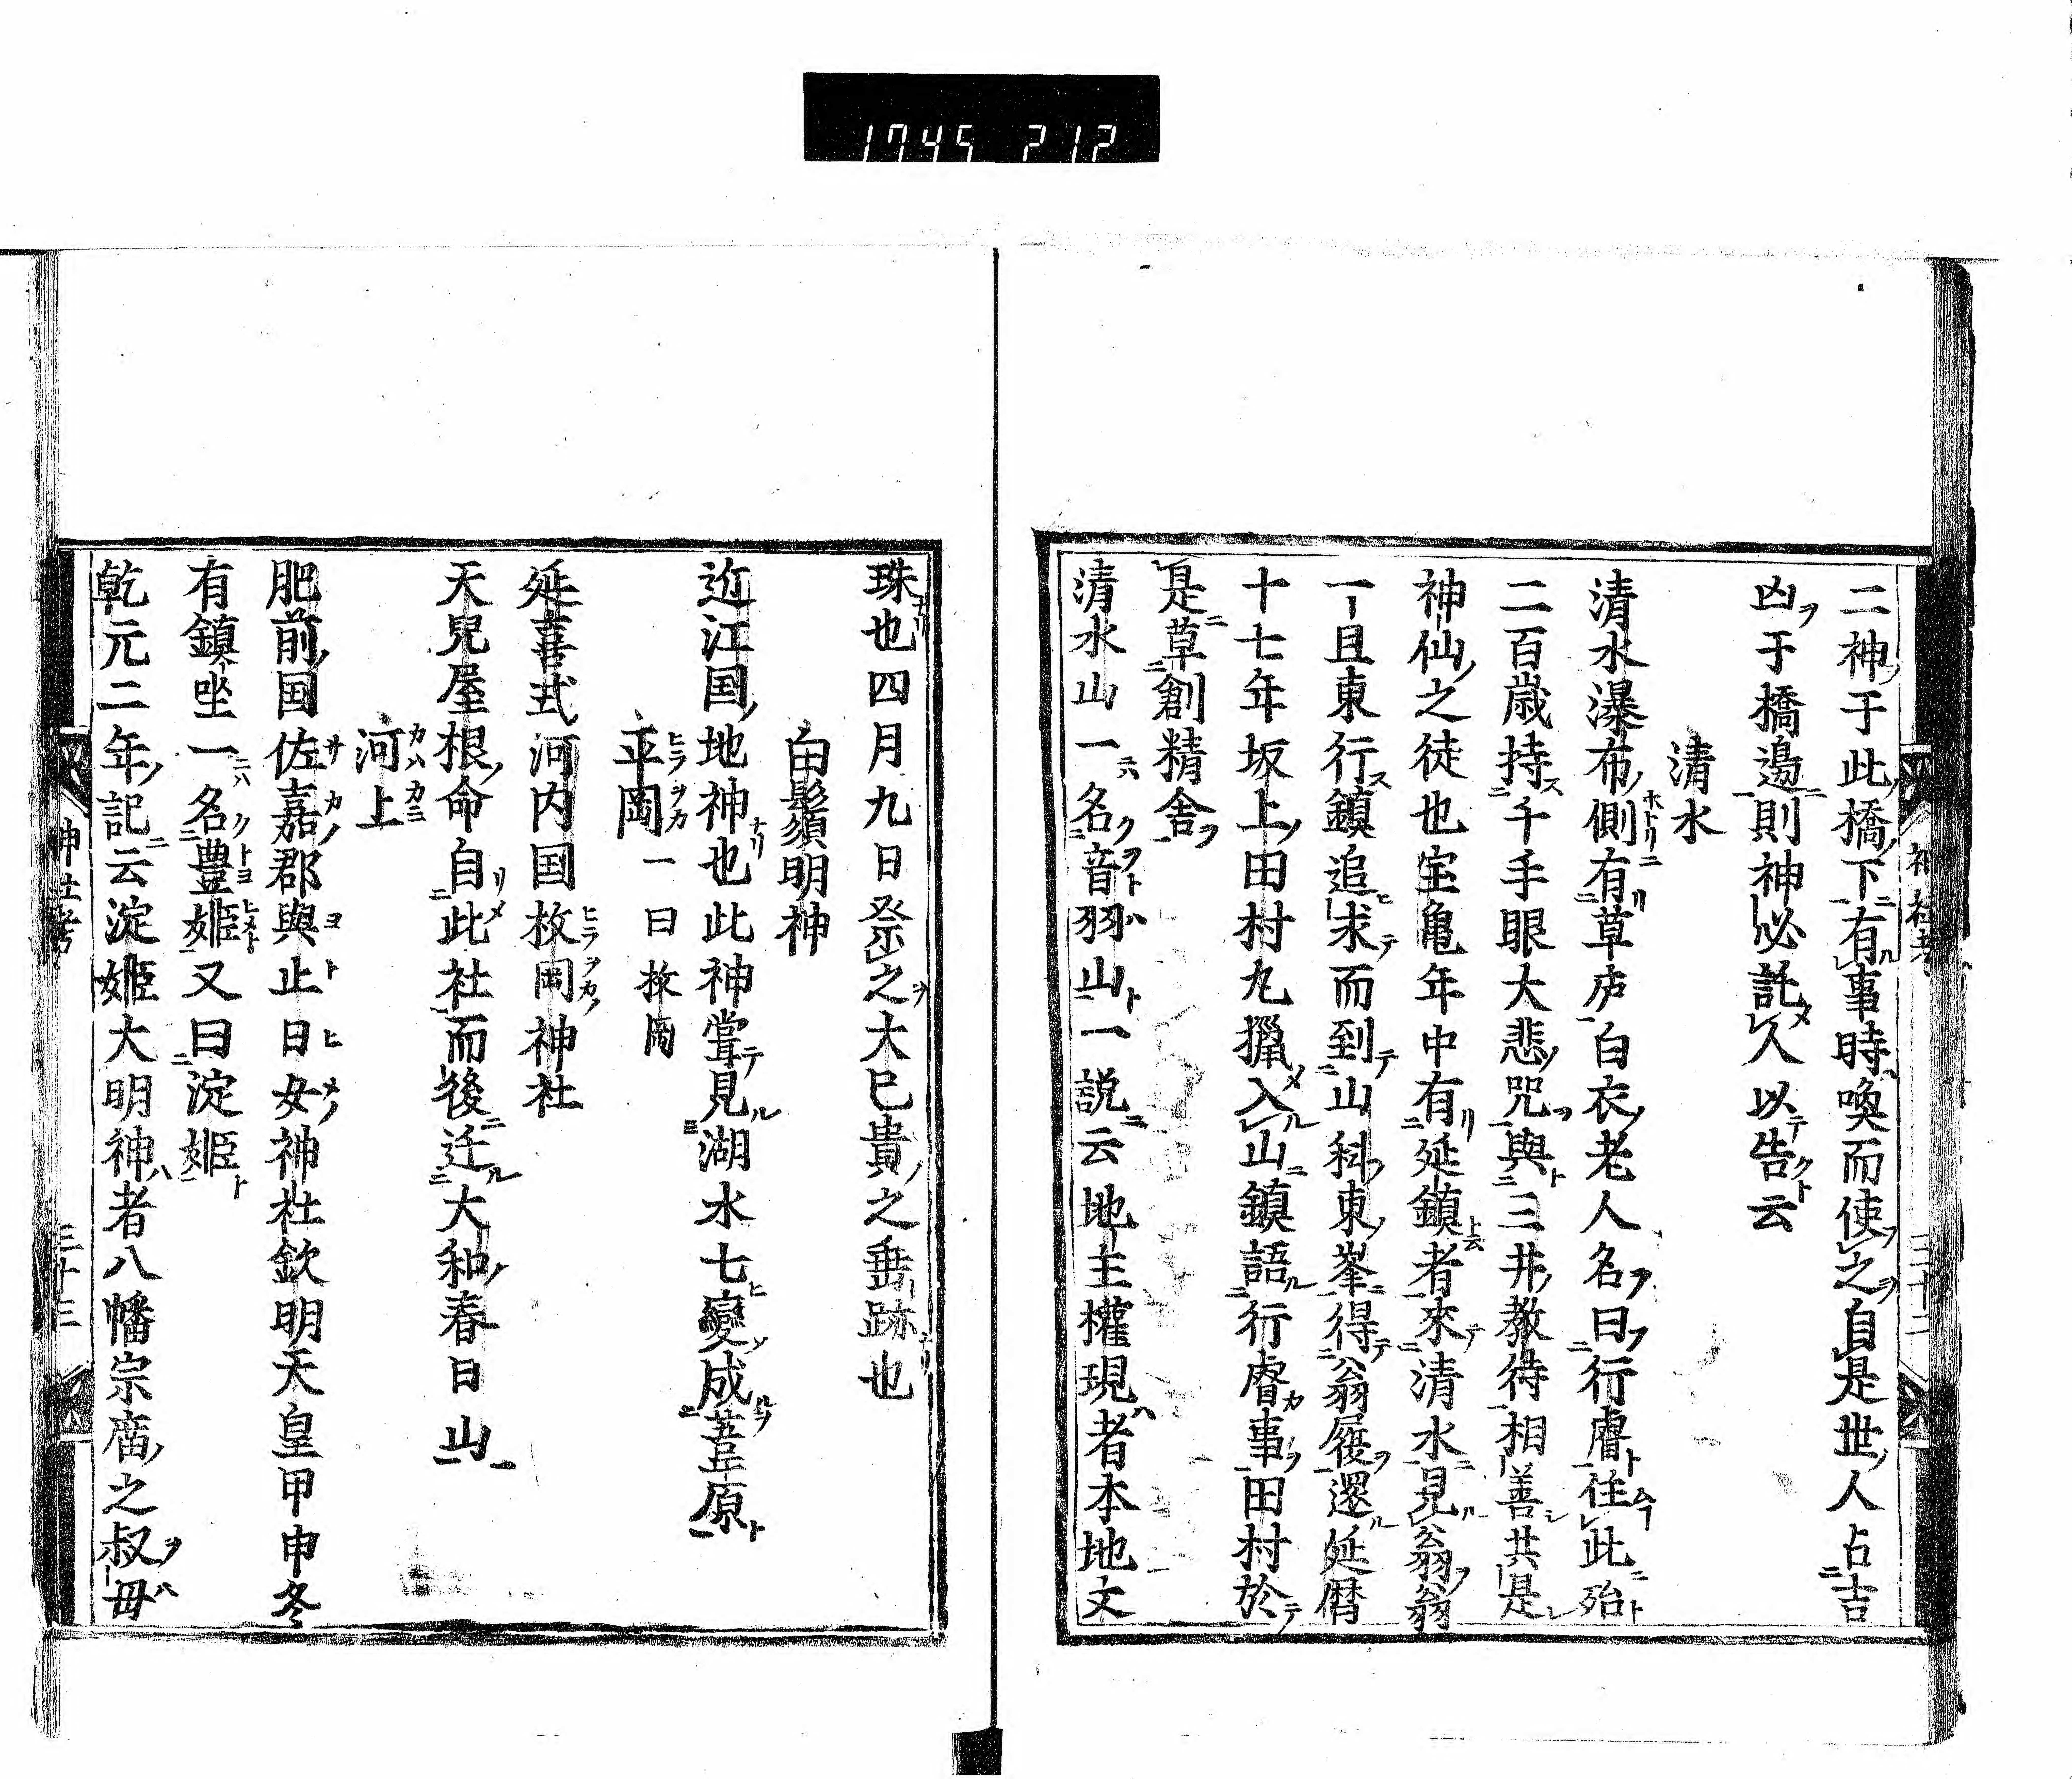 1745 212
二神于此橋下有事時喚而使之自是世人占吉
凶于橋邊則神必託人以告云
清水
清水瀑布側有草庐白衣老人名曰行睿住此殆
二百歳持千手眼大悲咒與三井教待相善共是
神仙之徒也宝亀年中有延鎮者來清水見翁翁
一且東行鎮追求而到山科東峯得翁履還延暦
十七年坂上田村丸獵入山鎮語行睿事田村於
是草創精舎
清水山一名音羽山一説云地主權現者本地文
神社考
三十二
珠也四月九日祭之大巳貴之垂跡也
白髭須明神
近江国地神也此神甞見湖水七變成葦原
平岡一曰枚岡
延喜式河内国枚岡神社
天兒屋根命自此社而後迁大和春日山
河上
肥前国佐嘉郡與止日女神社欽明天皇甲申冬
有鎮坐一名豊姫又曰淀姫
乾元二年記云淀姫大明神者八幡宗廟之叔毋
神社考
三十三